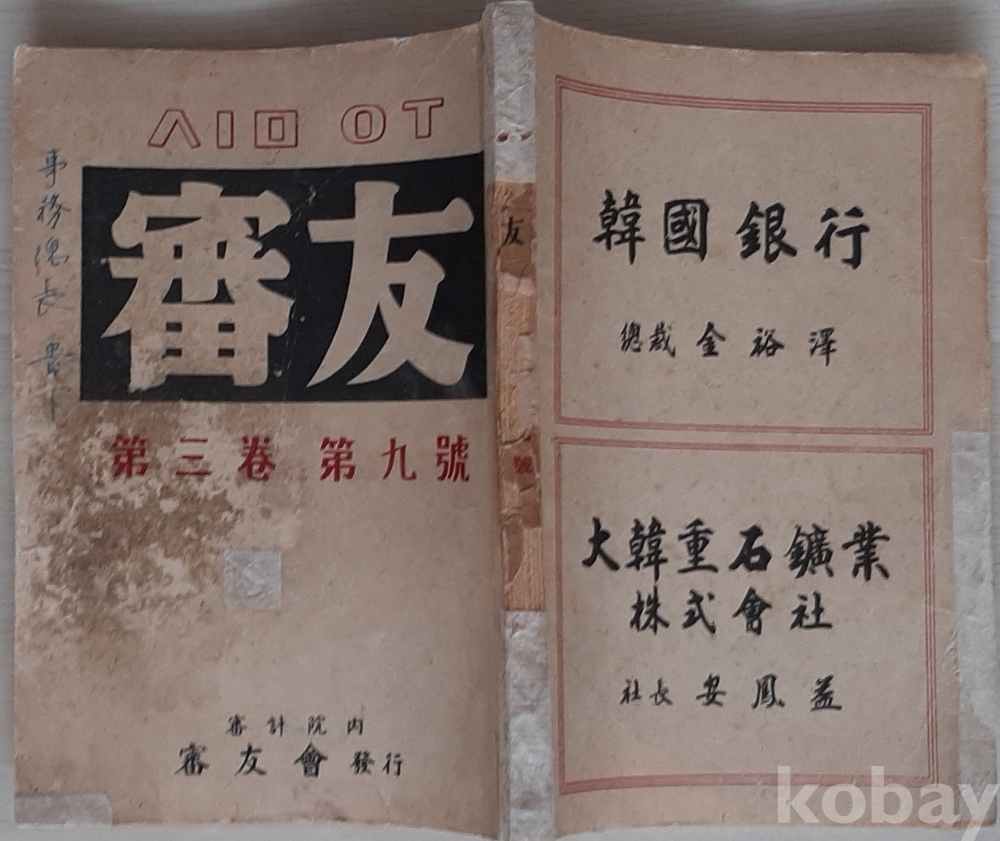 ㅅㅣㅁ ㅇㅜ
審友
第三卷 第九號
事務總長 貴下
審計院內
審友會 發行
友
號
韓國銀行
總裁 金裕澤
大韓重石鑛業
株式會社
社長 安鳳益
kobay